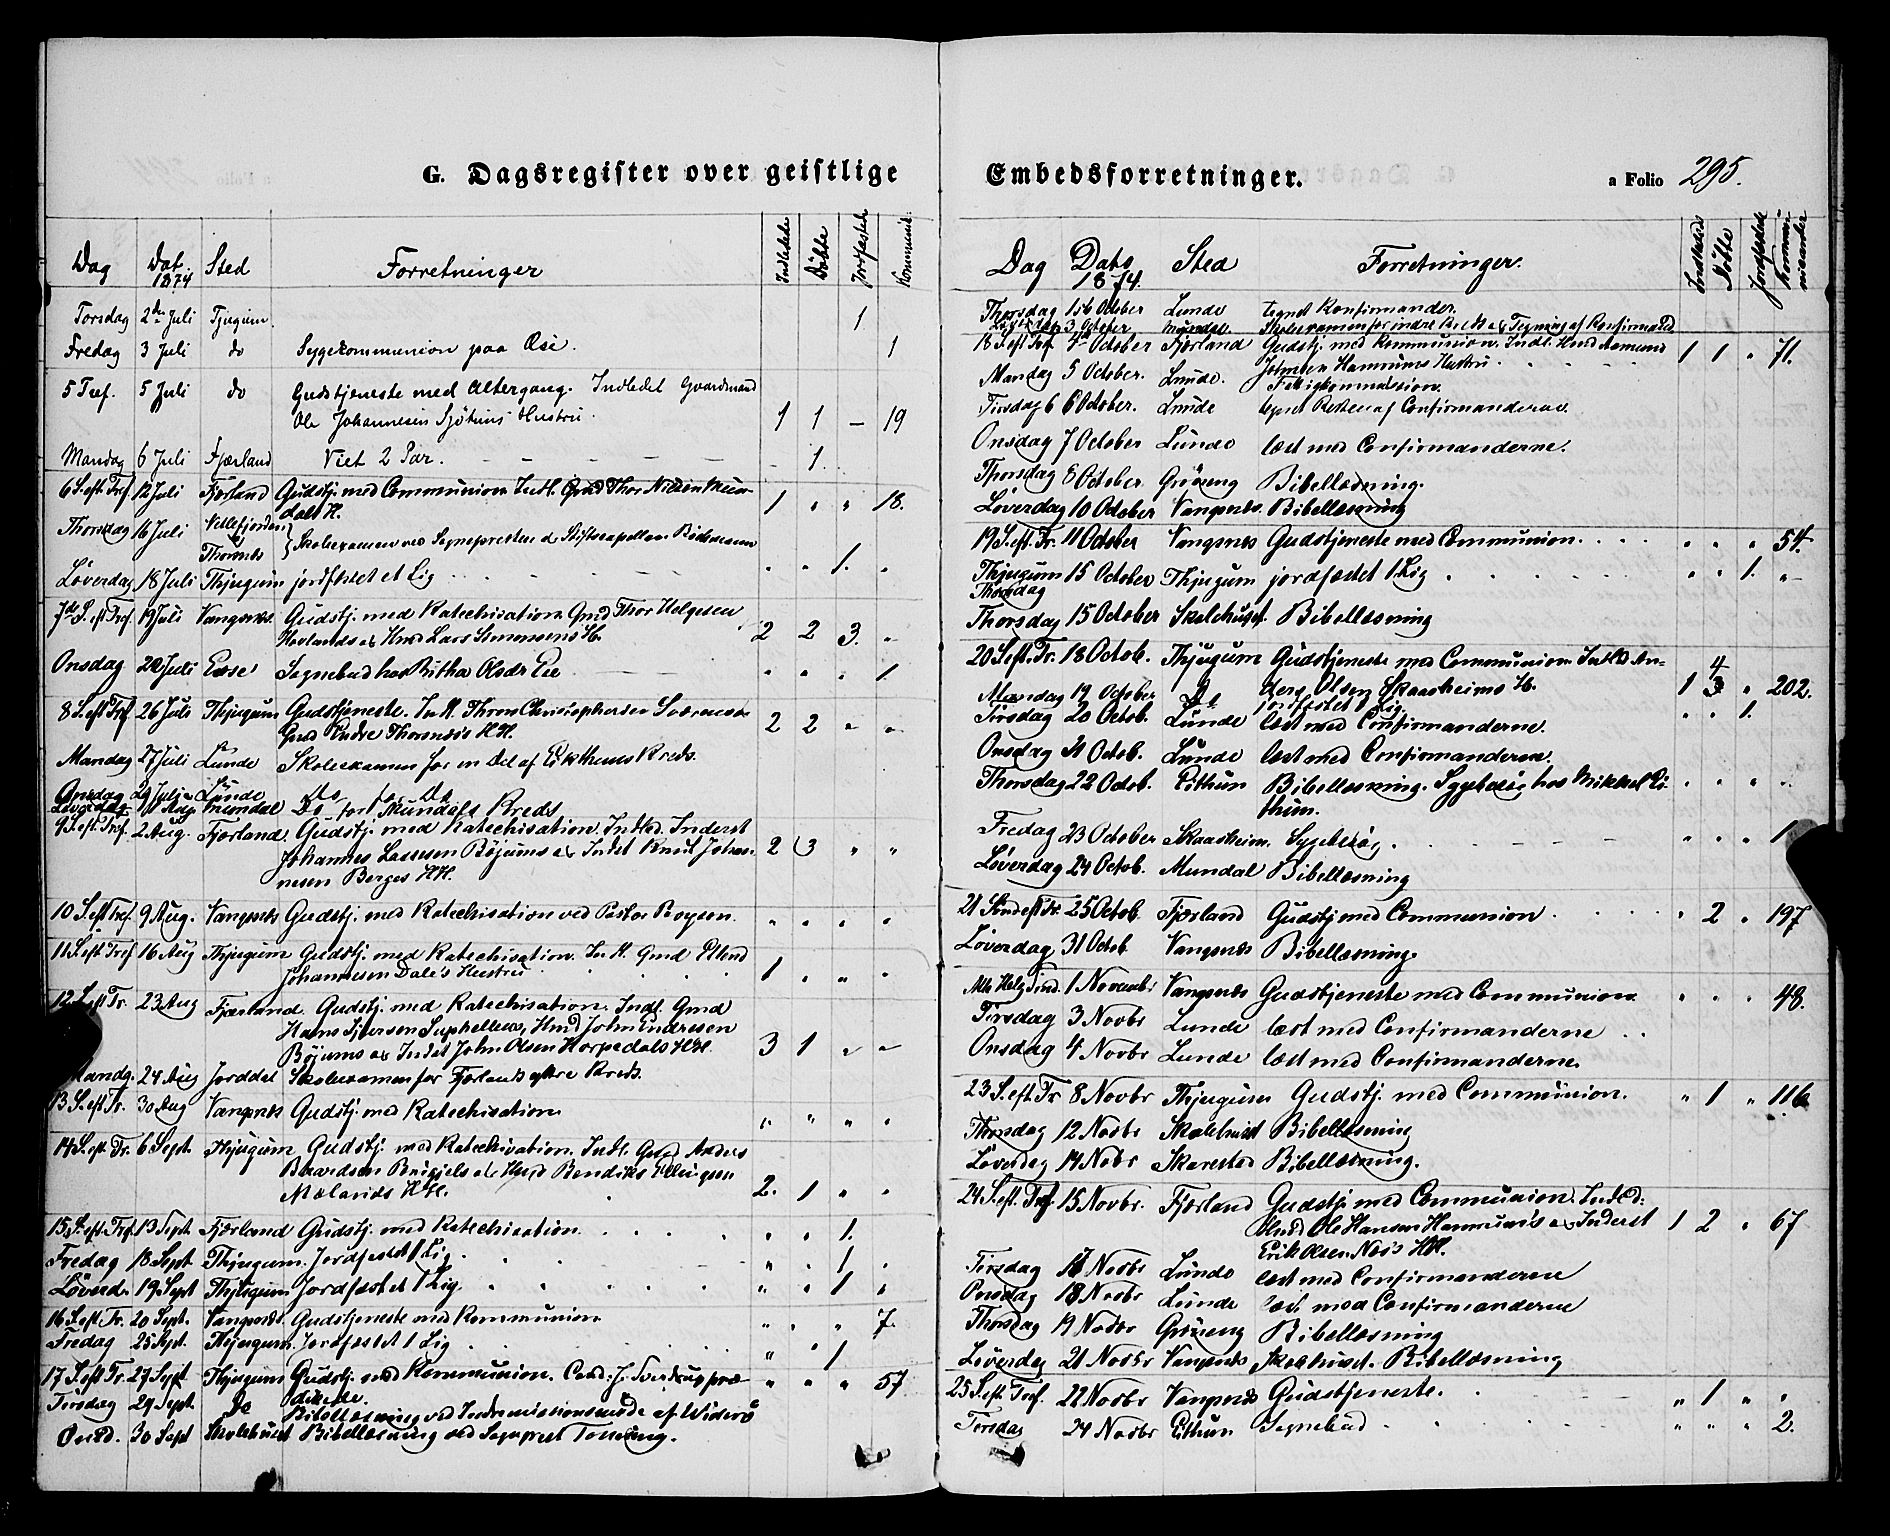 G. Dagsregister over geistlige
Dag Dat. 1874 Sted Forretninger Indledede Döbte Jordfæstede Kommunik.
Torsdag 2den Juli Tjugum. 1
Fredag 3 Juli do Sygekommunion paa Ese. 1
5 Tref. 5 Juli do Gudstjeneste med Altergang. Indledet Gaardmand
Ole Johannesen Sjøtuns Hustru. 1 1 — 19
Mandag 6 Juli Fjærland Viet 2 Par. 1.
6 S. eft. Tref 12 Juli Fjærland Gudstj. med Communion Indl. Gmd Thor Nilsen Mun-
dals H. 1 " " 18.
Thorsdag 16 Juli Vetlefjorden
Thorsnes Skoleexamen ved Sognepresten & Stiftscapellan " " 1. "
Løverdag 18 Juli Thjugum jordfæstet et Lig
7de S. eft Tref. 19 Juli Vangsnes. Gudstj. med Katechisation Gmd Thor Helgesen
Hovlands & Hmd Lars Simonsens H. 2 2 3. "
Onsdag 22 Juli Esse Sognebud hos Britha Olsdr Ese " " " 1
8 S. eft Tref 26 Juli Thjugum Gudstjeneste. Indl. Thron Christophersen
Gmd Endre Thorsnes's HH. 2 2 " "
Mandag 27 Juli Lunde Skoleexamen for en Del af Kreds.
Onsdag 29 Juli Lunde do for do
Løverdag 1 Aug. Mundal Do for Mundals Kreds
9 S. eft. Tref. 2 Aug. Fjærland. Gudstj. med Katechisation. Indled. Inderst
Johannes Lassesen Bøjums & Indst Knut Johan-
nesen Berges HH. 2 3 " "
10 S. eft Tref. 9 Aug. Vangsnes Gudstj. med Katechisation ved Pastor Boysen. " " " "
11 S. eft Tref 16 Aug Thjugum Gudstj. med Katechisation. Indl. Gmd Erlend
Johannesen Dale's Hustru 1 " " "
12 S. eft Tr. 23 Aug Fjærland. Gudstj. med Katechisation. Indl. Gmd
Hans Suphellens, Hmd John Endresen
Bøjums & Indst John Olsen Horpedals HH. 3 1 " "
Mandg. 24 Aug Jorddal Skoleexamen for Fjærlands ytre Kreds.
13 S. eft Tr. 30 Aug Vangsnes Gudstj. med Katechisation " " " "
14 S. eft Tr. 6 Sept. Thjugum Gudstj. med Katechisation. Indl. Gmd Anders
Baardsen & Hmd Bendik Ellingsen
Mælands HH. 2. 1 " "
15 S. eft. Tref. 13 Sept. Fjærland Gudstj. med Katechisation " " 1.
Fredag 18 Sept Thjugum. Jordfæstet 1 Lig. " " 1 "
Løverd. 19 Sept Thjugum Jordfæstet 1 Lig " " 1 "
16 S. eft Tr. 20 Sept. Vangsnes. Gudstjeneste med Kommunion " " " 7.
Fredag 25 Sept. Thjugum. Jordfæstet 1 Lig " 1
17 S. eft Tr. 27 Sept. Thjugum Gudstj. med Kommunion. Cand: J. Sverdrup præ- " " " 57
dikede.
Tirsdag 29 Sept. Do Bibellæsning ved Indremissionsmøde af
Onsd. 30 Sept Skolehuset Bibellæsning ved Sognprest

Embedsforretninger. a Folio 295.
Dag Dato 1874. Sted Forretninger. Indledede Döbte Jordfæstede Kommunicanter
Thorsdag 1st October Lunde tegnet Konfirmander.
Løverdag 3 October Mundal. Skoleexamen for indre Kreds & Tegning af Konfirmand
18 S. eft Tref. 4de October Fjærland Gudstj. med Kommunion. Indl. Hmd Aamund
Johnsen Hamrums Hustru 1 1 " 71.
Mandag 5 October. Lunde. Fattigkommission.
Tirsdag 6 October. Lunde tegnet Resten af Confirmanderne.
Onsdag 7 October Lunde læst med Confirmanderne.
Thorsdag 8 October Grøneng Bibellæsning.
Løverdag 10 October Vangsnes. Bibellæsning
19 S. eft. Tr. 11 October Vangsnes Gudstjeneste med Communion. " " " 54.
Thjugum 15 October Thjugum jordfæstet 1 Lig " " 1. "
Thorsdag
Thorsdag 15 October Skolehuset. Bibellæsning
20 S. eft. Tr. 18 Octob. Thjugum Gudstjeneste med Communion Indld An- 4
ders Olsen Skaasheims H. 1 3 " 202.
Mandag 19 October Do jordfæstet 1 Lig. " " 1.
Tirsdag 20 Octob. Lunde læst med Confirmanderne.
Onsdag 21 Octob. Lunde læst med Confirmanderne.
Thorsdag 22 Octob. Eithun Bibellæsning. Sygebesøg hos Mikkel Ei- " " " "
thun.
Fredag 23 October Skaasheim. Sygebesøg. " " " 1
Løverdag 24 Octob. Mundal Bibellæsning
21 Snd eft Tr. 25 Octob. Fjærland Gudstj. med Communion " 2 " 197
Løverdag 31 Octob. Vangsnes Bibellæsning.
Alle Helg. Snd. 1 Novembr Vangsnes Gudstjeneste med Communion " " " 48.
Tirsdag 3 Novbr Lunde læst med Confirmanderne
Onsdag 4 Novbr Lunde læst med Confirmanderne.
23 S. eft. Tr 8 Novbr Thjugum Gudstj. med Communion. " 1 " 116
Thorsdag 12 Novbr Skolehuset Bibellæsning
Løverdag 14 Novbr Skarestad Bibellæsning.
24 S. eft. Tref. 15 Novbr. Fjærland Gudstj. med Communion. Indled:
Hmd Ole Hansen Hamrums's & Inderst 1 2 " 67
Erik Olsen Nes's HH.
Tirsdag 17 Novbr Lunde læst med Confirmanderne
Onsdag 18 Novbr Lunde læst med Confirmanderne
Thorsdag 19 Novbr Grøneng Bibellæsning
Løverdag 21 Novbr Vangsnes Skolehuset. Bibellæsning
25 S. eft. Tref. 22 Novbr Vangsnes Gudstjeneste. " 1 " "
Tirsdag 24 Novbr Eithun Sognebud " " " 2.